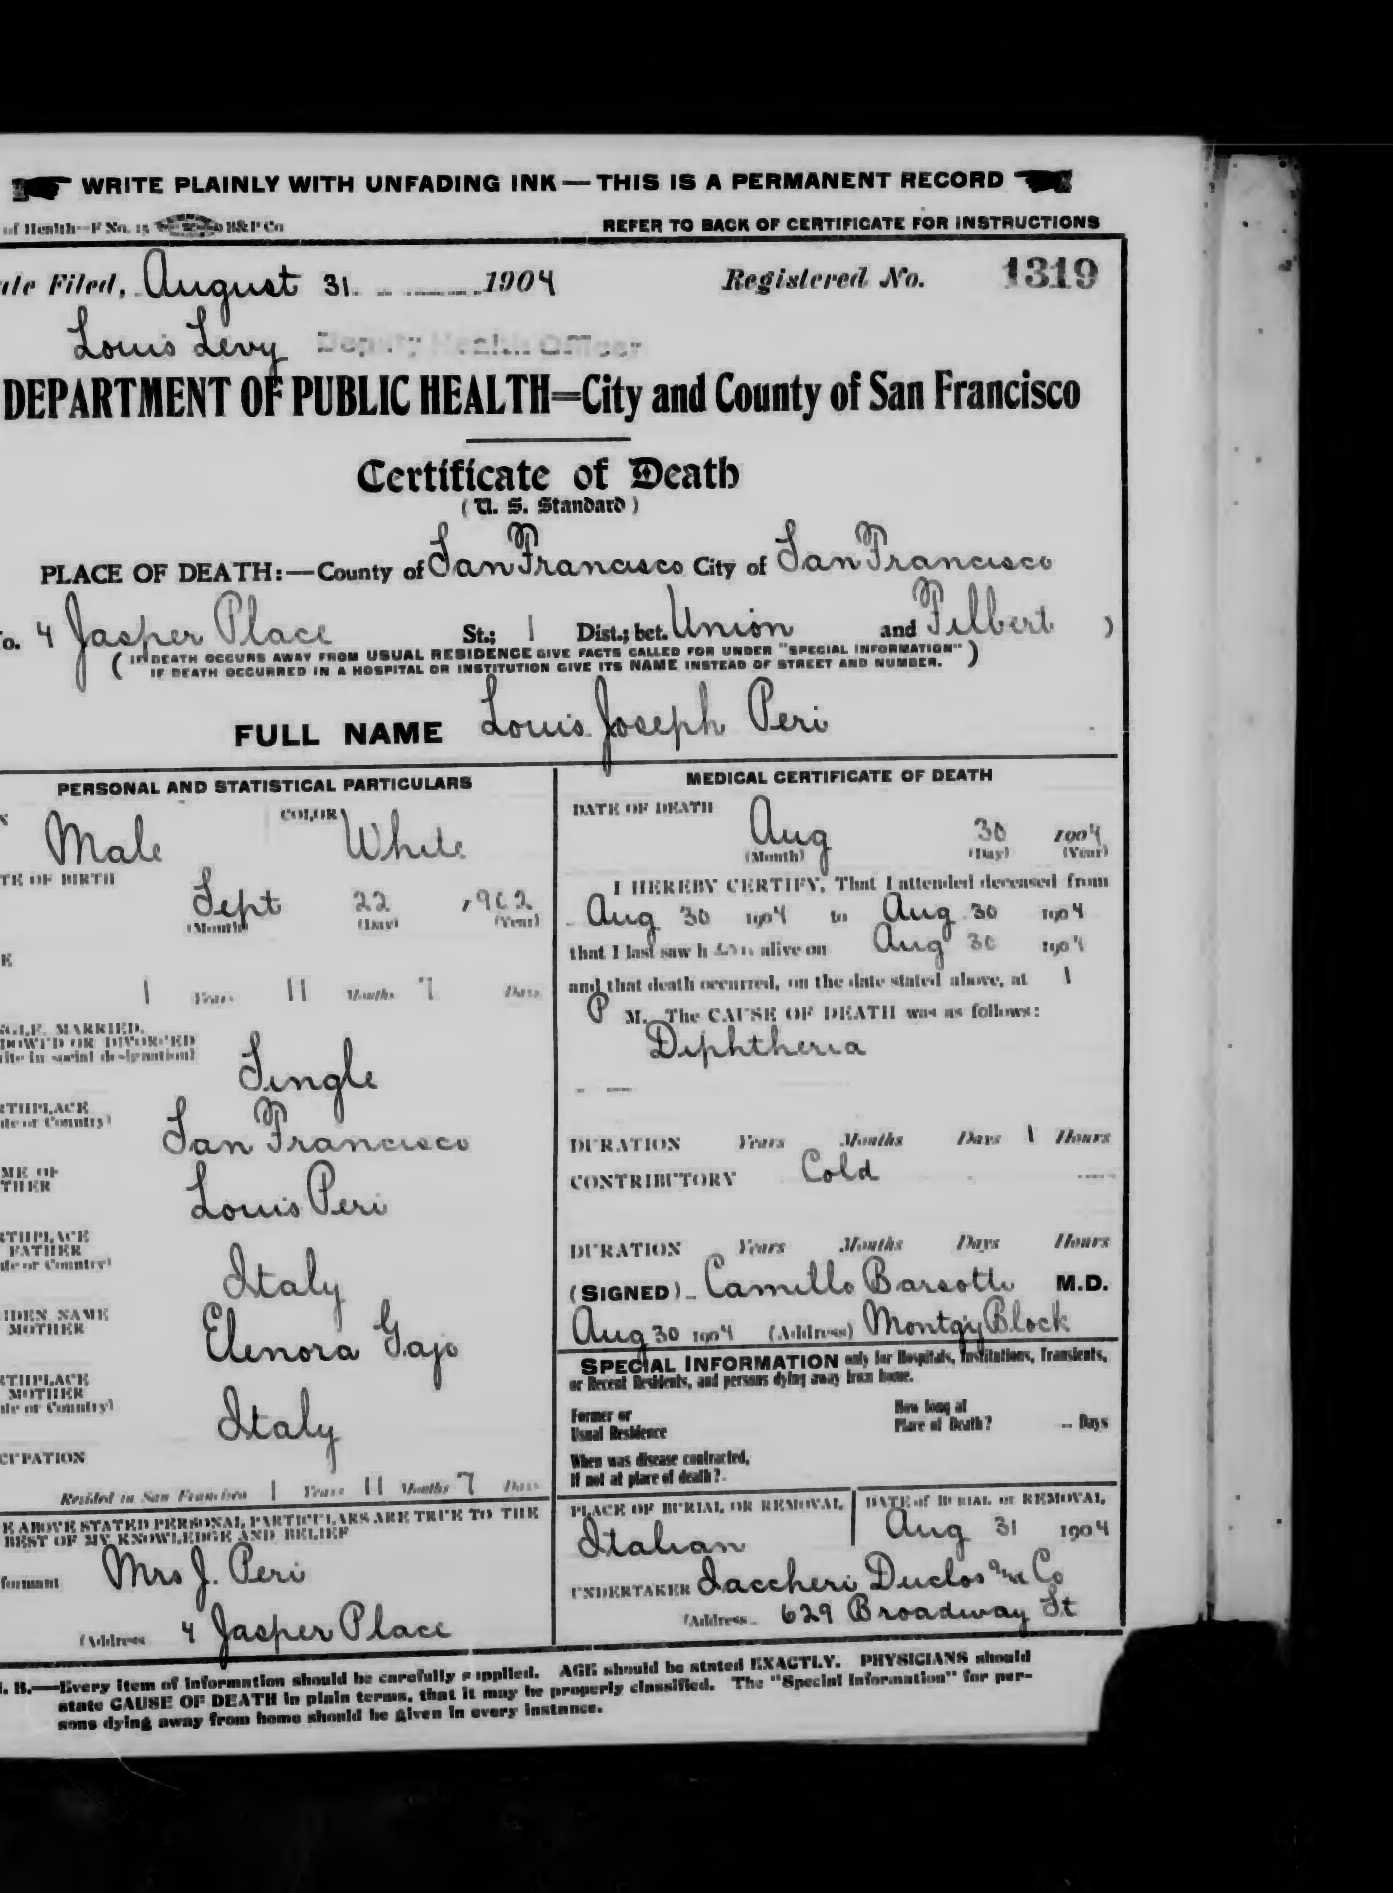 WRITE PLAINLY WITH UNFADING INK — THIS IS A PERMANENT RECORD
of Health—F No. 15 H&P Co REFER TO BACK OF CERTIFICATE FOR INSTRUCTIONS
ate Filed, August 31 1904 Registered No. 1319
Louis Levy Deputy Health Officer
DEPARTMENT OF PUBLIC HEALTH=City and County of San Francisco
Certificate of Death
(U. S. Standard)
PLACE OF DEATH:—County of San Francisco City of San Francisco
o. 4 Jasper Place St.; 1 Dist.; bet. Union and Filbert )
( IF DEATH OCCURS AWAY FROM USUAL RESIDENCE GIVE FACTS CALLED FOR UNDER "SPECIAL INFORMATION" )
IF DEATH OCCURRED IN A HOSPITAL OR INSTITUTION GIVE ITS NAME INSTEAD OF STREET AND NUMBER.
FULL NAME Louis Joseph Peri
PERSONAL AND STATISTICAL PARTICULARS
X Male COLOR White
TE OF BIRTH
Sept 22 1902
(Month) (Day) (Year)
E
1 Years 11 Months 7 Days
GLE, MARRIED,
DOWED OR DIVORCED
rite in social designation)
Single
RTHPLACE
ate or Country)
San Francisco
ME OF
THER
Louis Peri
RTHPLACE
FATHER
ate or Country)
Italy
IDEN NAME
MOTHER
Elenora Gajo
RTHPLACE
MOTHER
ate or Country)
Italy
CUPATION
Resided in San Francisco 1 Years 11 Months 7 Days
E ABOVE STATED PERSONAL PARTICULARS ARE TRUE TO THE
BEST OF MY KNOWLEDGE AND BELIEF
formant Mrs J. Peri
(Address 4 Jasper Place
MEDICAL CERTIFICATE OF DEATH
DATE OF DEATH
Aug 30 1904
(Month) (Day) (Year)
I HEREBY CERTIFY, That I attended deceased from
Aug 30 1904 to Aug 30 1904
that I last saw him alive on Aug 30 1904
and that death occurred, on the date stated above, at 1
P M. The CAUSE OF DEATH was as follows:
Diphtheria
DURATION Years Months Days 1 Hours
CONTRIBUTORY Cold
DURATION Years Months Days Hours
(SIGNED) Camillo Barsotti M.D.
Aug 30 1904 (Address) Montgy Block
SPECIAL INFORMATION only for Hospitals, Institutions, Transients,
or Recent Residents, and persons dying away from home.
Former or
Usual Residence
How long at
Place of Death? Days
When was disease contracted,
If not at place of death?
PLACE OF BURIAL OR REMOVAL
Italian
DATE of BURIAL or REMOVAL
Aug 31 1904
UNDERTAKER Iaccheri Duclos and Co
(Address 629 Broadway St
N. B.—Every item of information should be carefully supplied. AGE should be stated EXACTLY. PHYSICIANS should
state CAUSE OF DEATH in plain terms, that it may be properly classified. The "Special Information" for per-
sons dying away from home should be given in every instance.